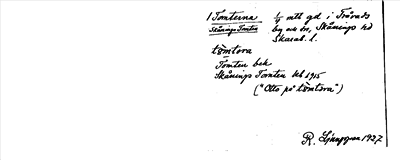 1 Tomterna
Skånings Tomten
1/4 mtl gd i Trävads
by och sn, Skånings hd
Skarab. l.
tòmtora
Tomten bek
Skånings Tomten hb 1915
("Otto på tòmtora")
R. Ljunggren 1927